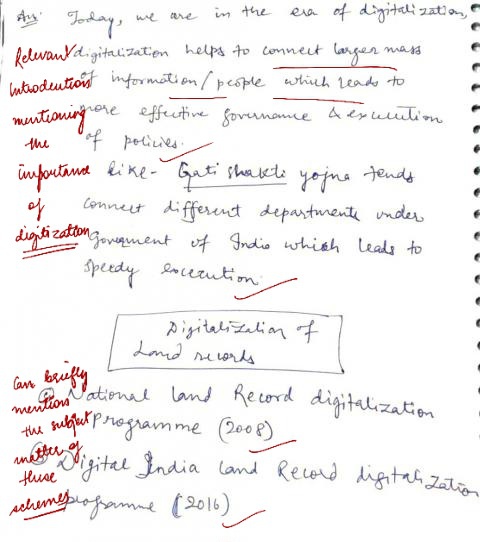 Ans: Today, we are in the era of digitalization,
Relevant digitalization helps to connect larger mass
Introduction of information/people which leads to
mentioning more effective governance & execution
the of policies.
importance Like- Gati Shakti yojna tends
of connect different departments under
digitization Government of India which leads to
speedy execution.
Digitalization of
Land records
Can briefly
mention National Land Record digitalization
the subject Programme (2008)
matter of Digital India Land Record digitalization
these
schemes programme (2016)